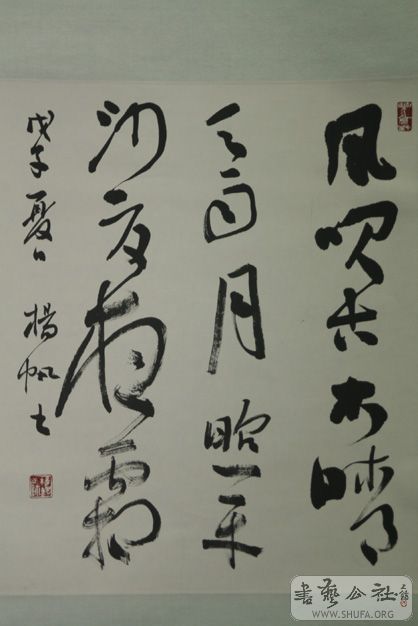 風吹古木晴
天雨月照平
沙夏夜霜
戊子夏日 楊帆
書藝公社
WWW.SHUFA.ORG